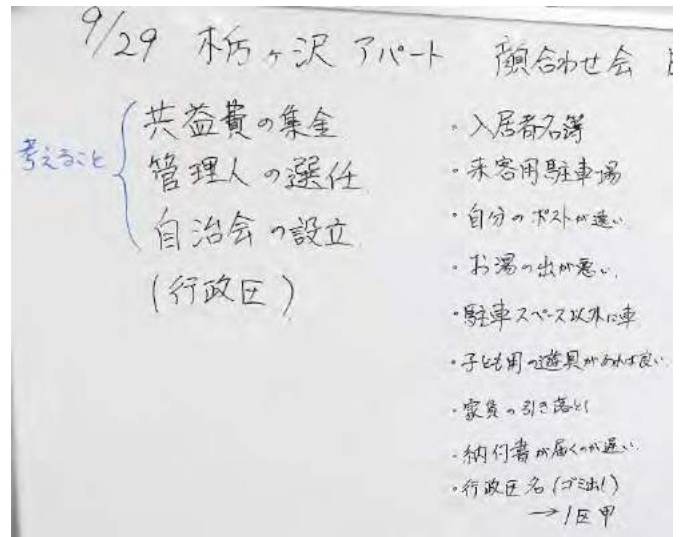 9/29 栃ヶ沢アパート 顔合わせ会
考えること
共益費の集金
管理人の選任
自治会の設立
(行政区)
・入居者名簿
・来客用駐車場
・自分のポストが遠い
・お湯の出が悪い
・駐車スペース以外に車
・子ども用の遊具があれば良い
・家賃の引き落とし
・納付書が届くのが遅い
・行政区名(ゴミ出し)
→1区甲